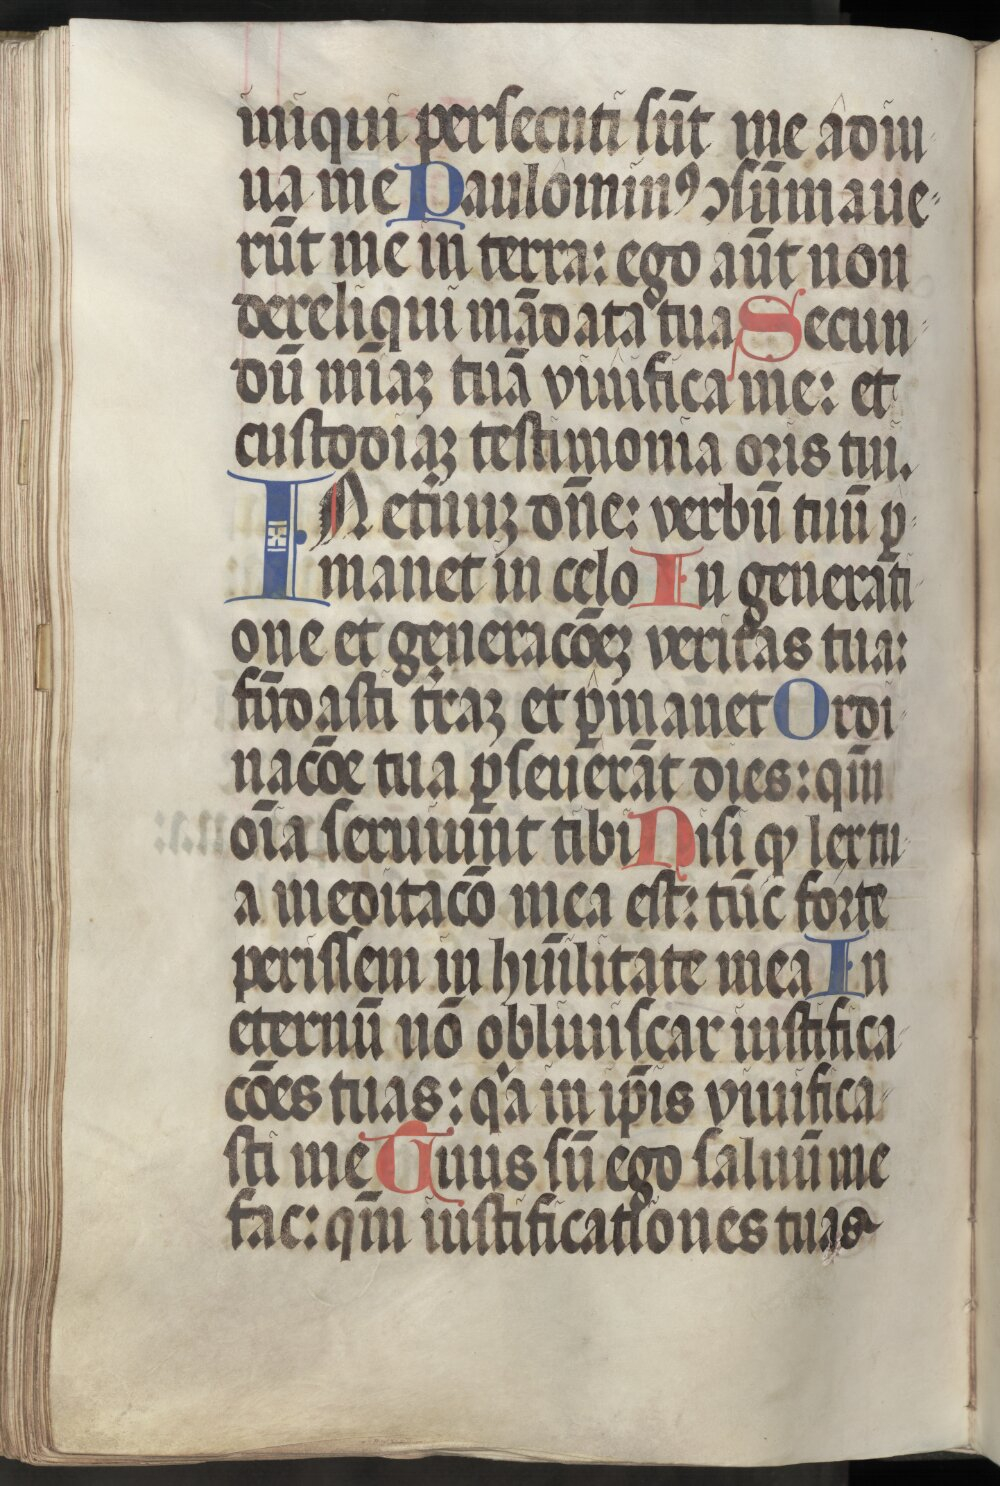 iniqui persecuti sūt me adiu
ua me Paulominꝰ ꝯsūmaue
rūt me in terra: ego aūt non
dereliqui mādata tua Secun
dū mīaꝫ tuā viuifica me: et
custodiaꝫ testimonia oris tui.
IN eternuꝫ dn̄e: verbū tuū ꝑ
manet in celo In generati
one et generacōeꝫ veritas tua:
fūdasti tr̄aꝫ et ꝑmanet Ordi
nacōe tua ꝑseuerāt dies: qm̄
oīa seruiunt tibi Nisi ꝙ lex tu
a meditacō mea est: tūc forte
perissem in hūilitate mea In
eternū nō obliuiscar iustifica
cōes tuas: qa in ip̄is viuifica
sti me Tuus sū ego saluū me
fac: qm̄ iustificationes tuas